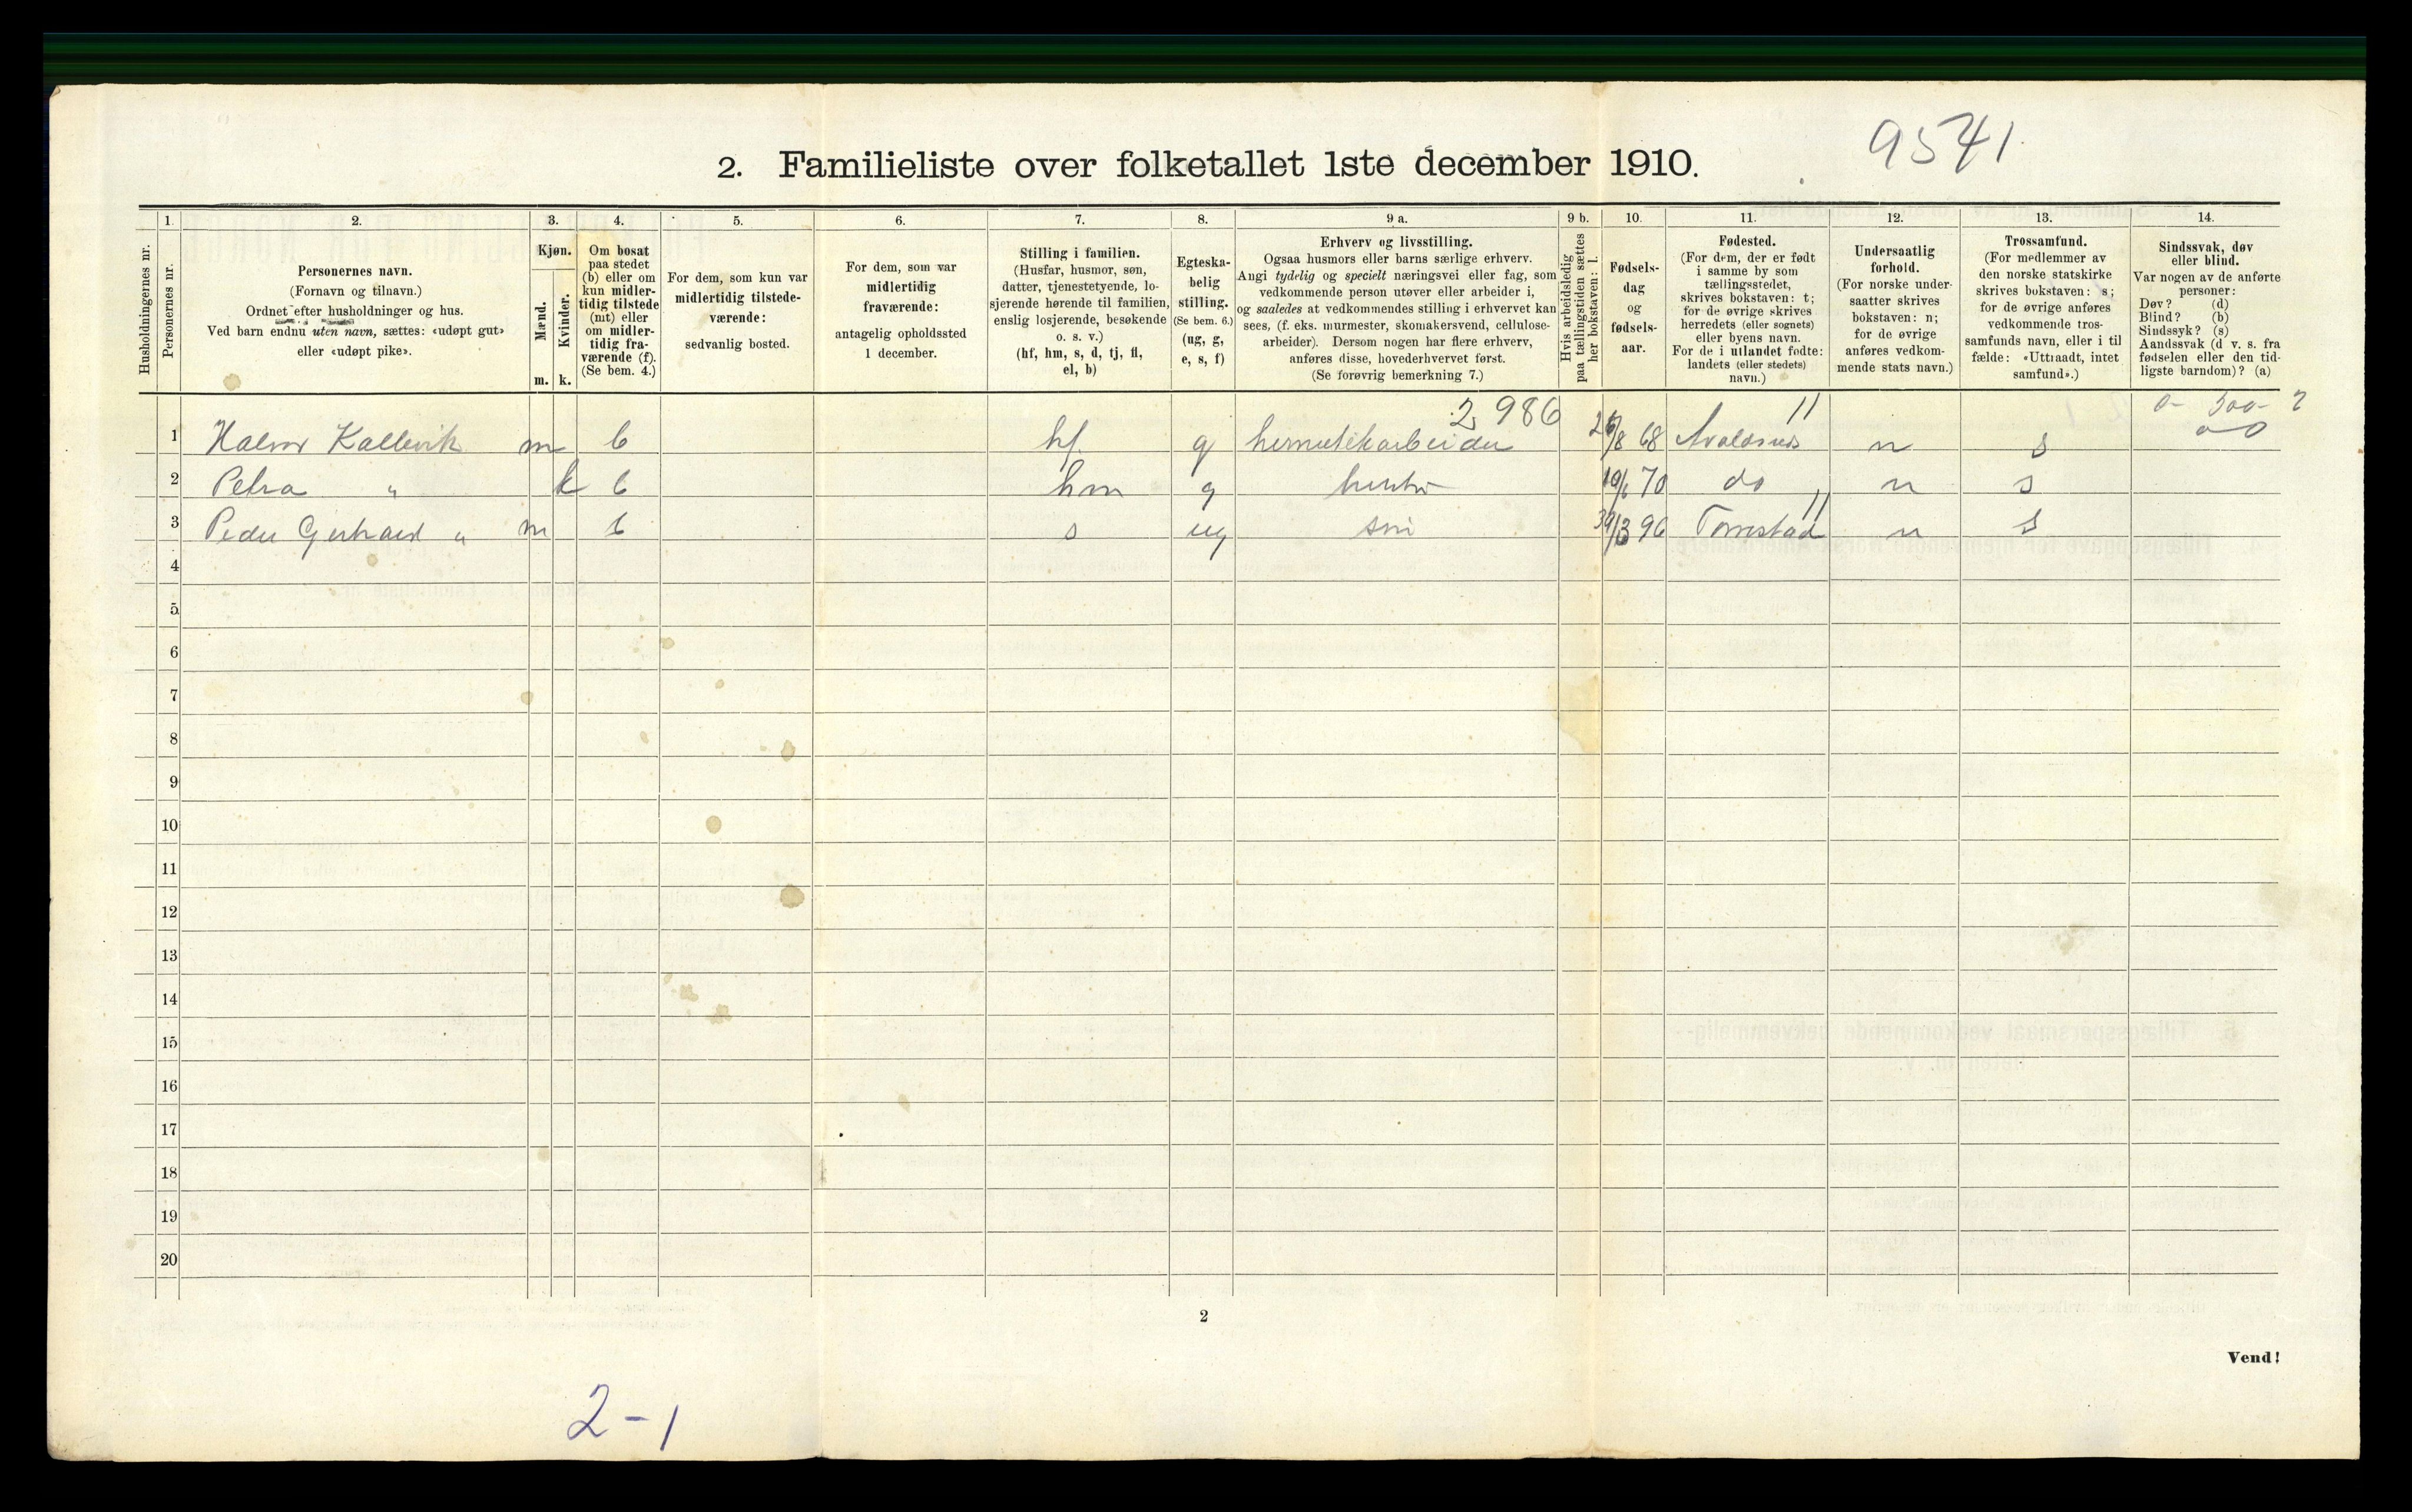 9541.
2. Familieliste over folketallet 1ste december 1910.
Husholdningernes nr.
1.
Personernes nr.
2.
Personernes navn.
(Fornavn og tilnavn.)
Ordnet efter husholdninger og hus.
Ved barn endnu uten navn, sættes: «udøpt gut»
eller «udøpt pike».
3.
Kjøn.
Mænd.
Kvinder.
m. k.
4.
Om bosat
paa stedet
(b) eller om
kun midler-
tidig tilstede
(mt) eller
om midler-
tidig fra-
værende (f).
(Se bem. 4.)
5.
For dem, som kun var
midlertidig tilstede-
værende:
sedvanlig bosted.
6.
For dem, som var
midlertidig
fraværende:
antagelig opholdssted
1 december.
7.
Stilling i familien.
(Husfar, husmor, søn,
datter, tjenestetyende, lo-
sjerende hørende til familien,
enslig losjerende, besøkende
o. s. v.)
(hf, hm, s, d, tj, fl,
el, b)
8.
Egteska-
belig
stilling.
(Se bem. 6.)
(ug, g,
e, s, f)
9 a.
Erhverv og livsstilling.
Ogsaa husmors eller barns særlige erhverv.
Angi tydelig og specielt næringsvei eller fag, som
vedkommende person utøver eller arbeider i,
og saaledes at vedkommendes stilling i erhvervet kan
sees, (f. eks. murmester, skomakersvend, cellulose-
arbeider). Dersom nogen har flere erhverv,
anføres disse, hovederhvervet først.
(Se forøvrig bemerkning 7.)
9 b.
Hvis arbeidsledig
paa tællingstiden sættes
her bokstaven: l.
10.
Fødsels-
dag
og
fødsels-
aar.
11.
Fødested.
(For dem, der er født
i samme by som
tællingsstedet,
skrives bokstaven: t;
for de øvrige skrives
herredets (eller sognets)
eller byens navn.
For de i utlandet fødte:
landets (eller stedets)
navn.)
12.
Undersaatlig
forhold.
(For norske under-
saatter skrives
bokstaven: n;
for de øvrige
anføres vedkom-
mende stats navn.)
13.
Trossamfund.
(For medlemmer av
den norske statskirke
skrives bokstaven: s;
for de øvrige anføres
vedkommende tros-
samfunds navn, eller i til
fælde: «Uttraadt, intet
samfund».)
14.
Sindssvak, døv
eller blind.
Var nogen av de anførte
personer:
Døv? (d)
Blind? (b)
Sindssyk? (s)
Aandssvak (d v. s. fra
fødselen eller den tid-
ligste barndom)? (a)
2986 11 0- 300- 2
1 Halvor Kallevik m b hf. g hermetikarbeider 26/8 68 Avaldsnes n s
2 Petra " k b hm g hustru 19/6 70 do n s
11
3 Peder Gerhard " m b s ug søn 30/3 96 Torvestad n s
4
5
6
7
8
9
10
11
12
13
14
15
16
17
18
19
20
2
Vend!
2-1